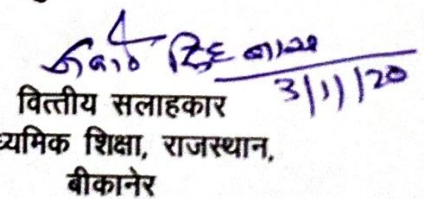 3/11/20
वित्तीय सलाहकार
ध्यमिक शिक्षा, राजस्थान,
बीकानेर